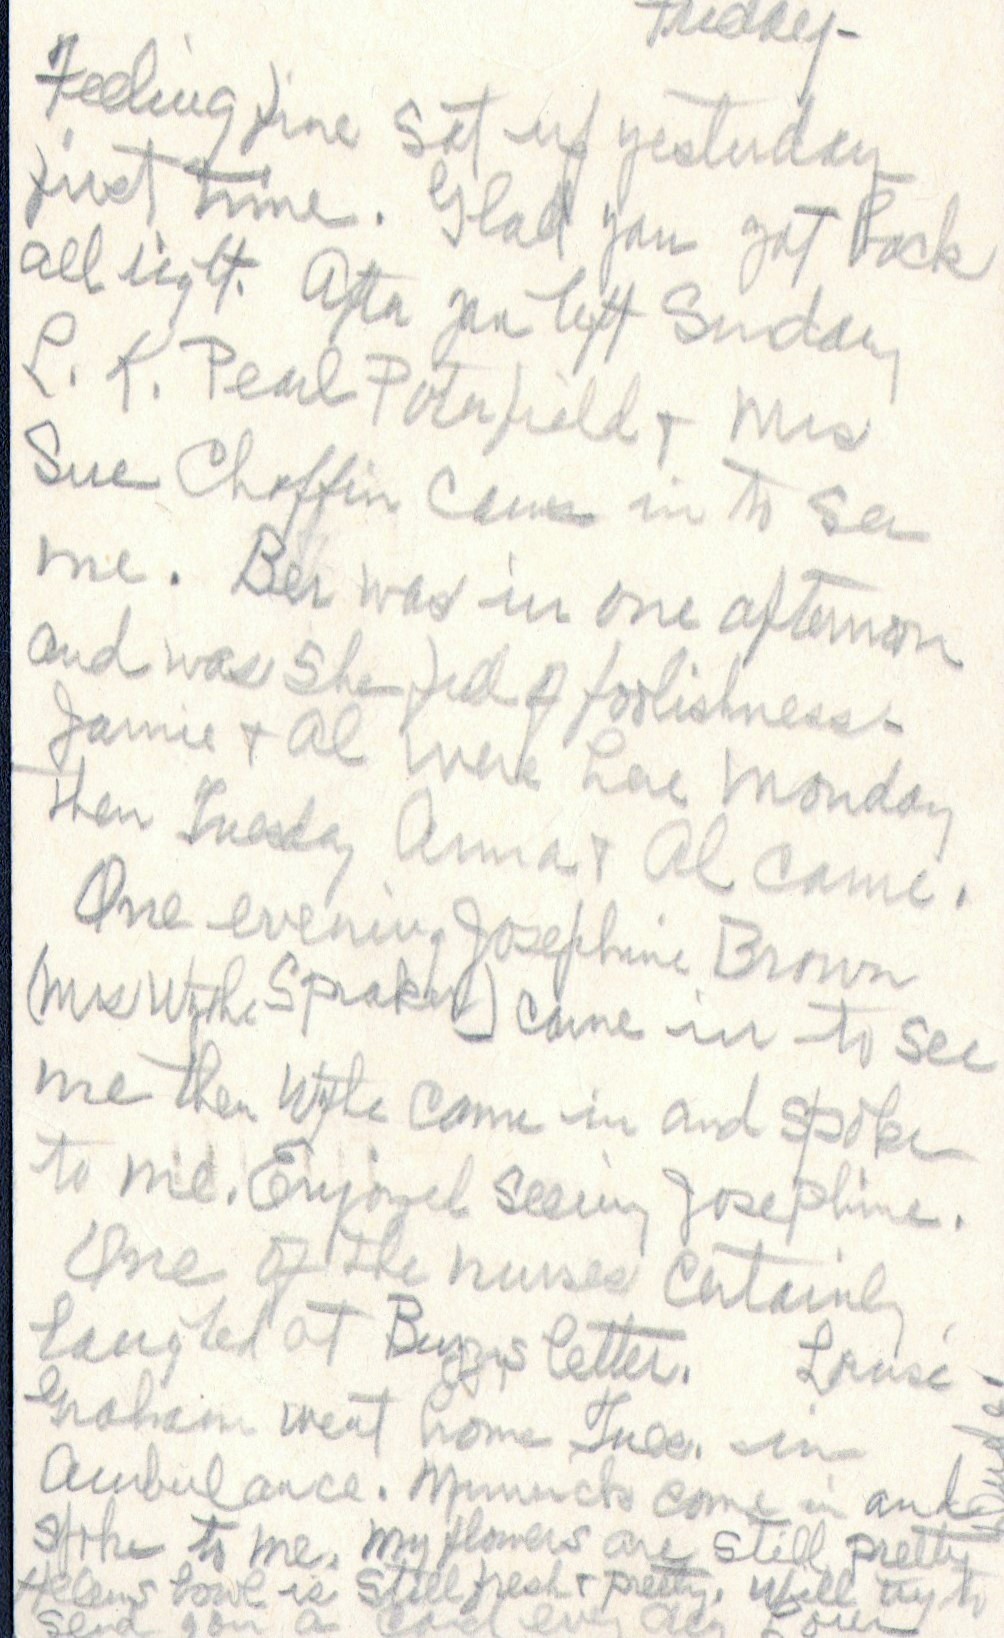 Friday-
Feeling fine Sat up yesterday
first time. Glad you got back
all right. After you left Sunday
L. K. Pearl Porterfield + Mrs
Sue Chaffin came in to see
me. Bee was in one afternoon
and was she full of foolishness-
Jamie + Al were here Monday
then Tuesday Anna + Al came.
One evening Josephine Brown
(Mrs Wythe Spraker) came in to see
me then Wythe came in and spoke
to me. Enjoyed seeing Josephine.
One of the nurses certainly
laughed at letter. Louise
Graham went home Tues. in
Ambulance. come in and
spoke to me. My flowers are still pretty
Helens bowl is still fresh + pretty. Will try to
send you a card every day Love